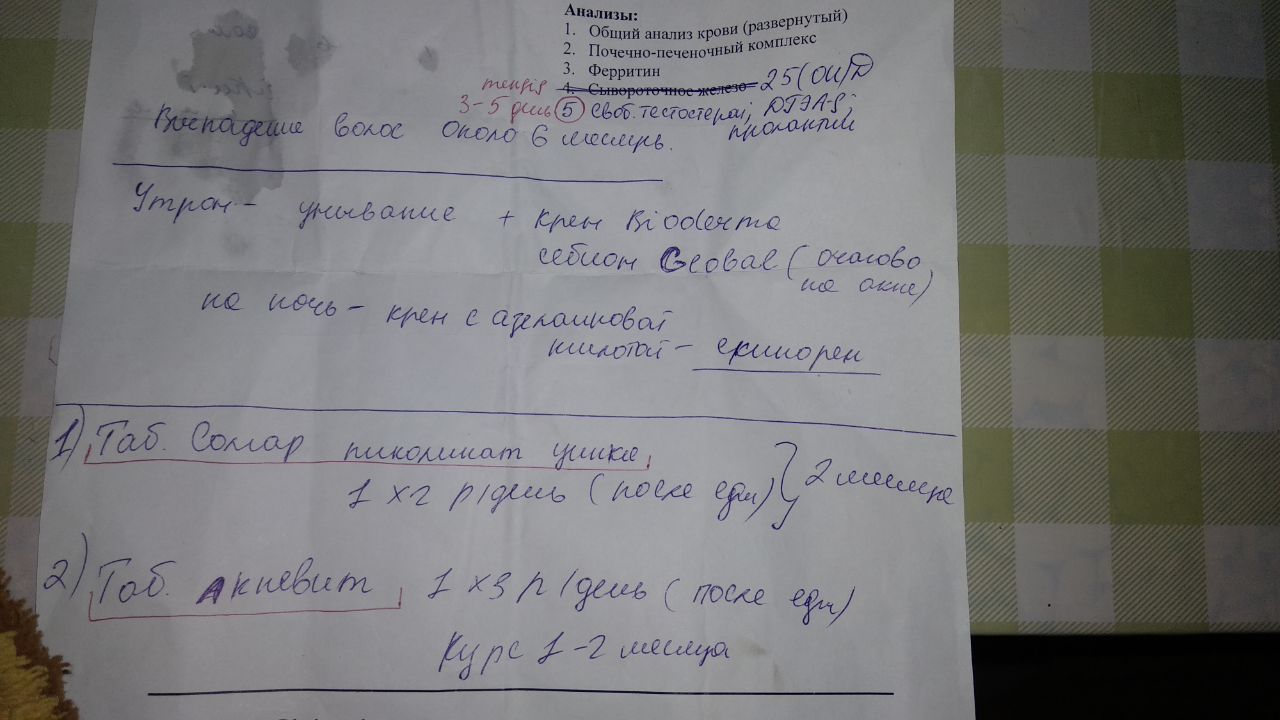 Анализы:
1. Общий анализ крови (развернутый)
2. Почечно-печеночный комплекс
3. Ферритин
4. Сывороточное железо 25(OH)D
3-5 день 5 своб. тестостерон; ДГЭА-S;
пролактин
Выпадение волос около 6 месяцев.
Утром - умывание + крем Bioderma
себиом Global (очагово
на акне)
на ночь - крем с азелаиновой
кислотой - скинорен
1) Таб. Солгар пиколинат цинка
1 x 2 р/день (после еды) } 2 месяца
2) Таб. Акневит 1 x 3 р/день (после еды)
Курс 1-2 месяца